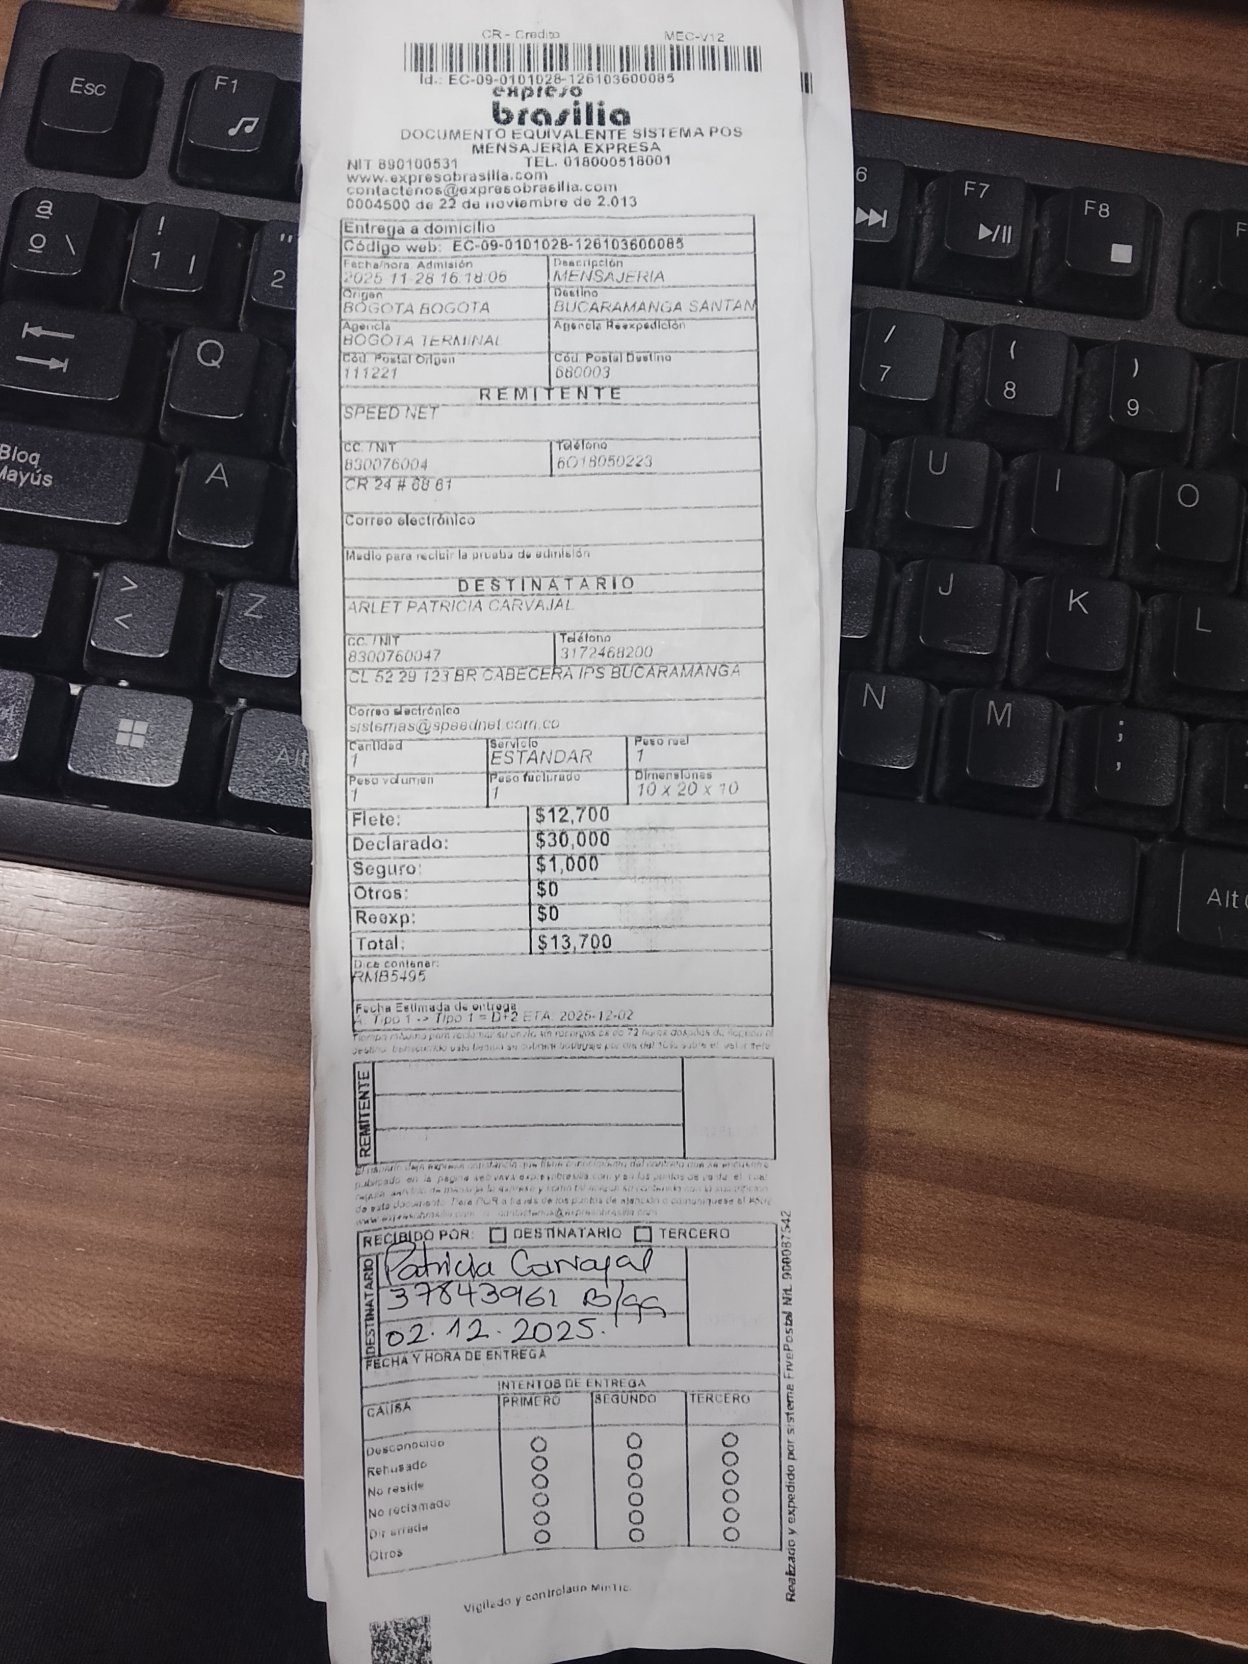 CR - Credito MEC-V12
Id.: EC-09-0101028-126103600085
expreso
brasilia
DOCUMENTO EQUIVALENTE SISTEMA POS
MENSAJERÍA EXPRESA
NIT 890100531 TEL. 018000518001
www.expresobrasilia.com
contactenos@expresobrasilia.com
0004500 de 22 de noviembre de 2.013
Entrega a domicilio
Código web: EC-09-0101028-126103600085
Fecha/hora Admisión Descripción
2025-11-28 16:18:06 MENSAJERIA
Origen Destino
BOGOTA BOGOTA BUCARAMANGA SANTAN
Agencia Agencia Reexpedición
BOGOTA TERMINAL
Cód. Postal Origen Cód. Postal Destino
111221 680003
REMITENTE
SPEED NET
CC. / NIT Teléfono
830076004 6018050223
CR 24 # 68 61
Correo electrónico
Medio para recibir la prueba de admisión
DESTINATARIO
ARLET PATRICIA CARVAJAL
CC. / NIT Teléfono
8300760047 3172468200
CL 52 29 123 BR CABECERA IPS BUCARAMANGA
Correo electrónico
sistemas@speednet.com.co
Cantidad Servicio Peso real
1 ESTANDAR 1
Peso volumen Peso facturado Dimensiones
1 1 10 x 20 x 10
Flete: $12,700
Declarado: $30,000
Seguro: $1,000
Otros: $0
Reexp: $0
Total: $13,700
Dice contener:
RMB5495
Fecha Estimada de entrega
A: Tipo 1 -> Tipo 1 = D+2 ETA: 2025-12-02
REMITENTE
RECIBIDO POR: DESTINATARIO TERCERO
DESTINATARIO
Patricia Carvajal
37843961 B/ga
02.12.2025.
FECHA Y HORA DE ENTREGA
INTENTOS DE ENTREGA
CAUSA PRIMERO SEGUNDO TERCERO
Desconocido
Rehusado
No reside
No reclamado
Dir errada
Otros
Vigilado y controlado MinTic.
Realizado y expedido por sistema FivePostal Nit. 900087542
Esc F1
ª º \ ! 1 | " 2
Q
Bloq Mayús A
> < Z
Alt
6 F7 F8
/ 7 ( 8 ) 9
U I O
J K L
N M ; ,
Alt